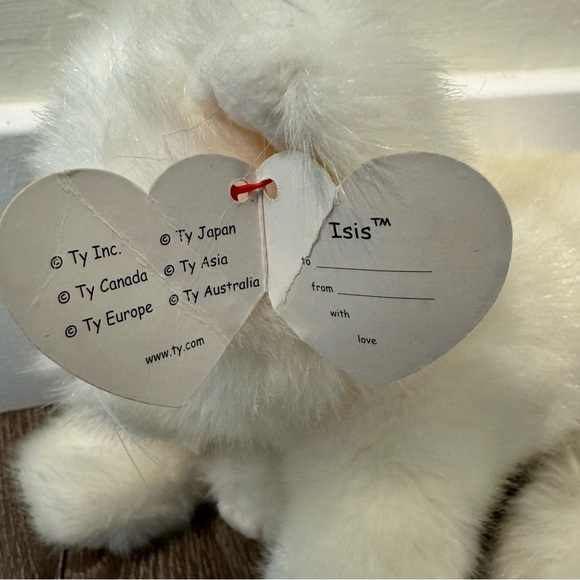 © Ty Inc.
© Ty Canada
© Ty Europe
© Ty Japan
© Ty Asia
© Ty Australia
www.ty.com
Isis™
to
from
with
love